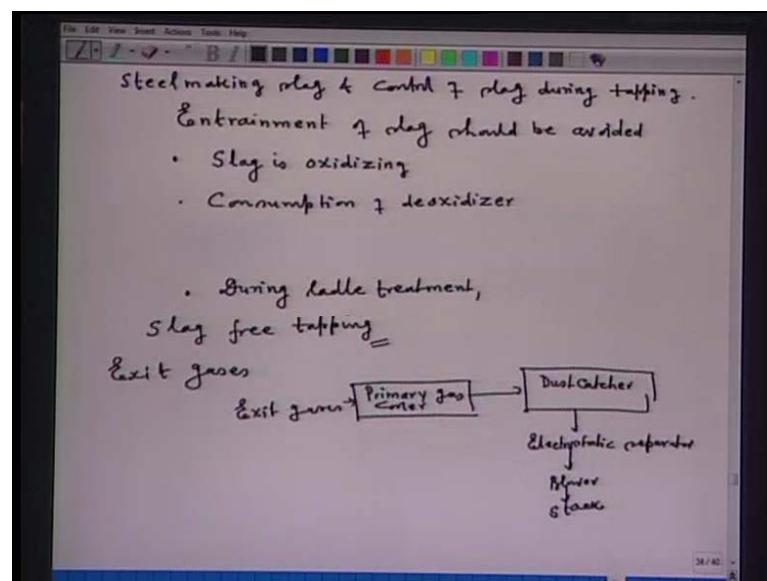 File Edit View Insert Actions Tools Help
Steelmaking slag & control of slag during tapping.
Entrainment of slag should be avoided
• Slag is oxidizing
• Consumption of deoxidizer
• During ladle treatment,
Slag free tapping
Exit gases
Exit gases → Primary gas cooler → Dust Catcher
Electrostatic separator
Blower
Stack
34/40